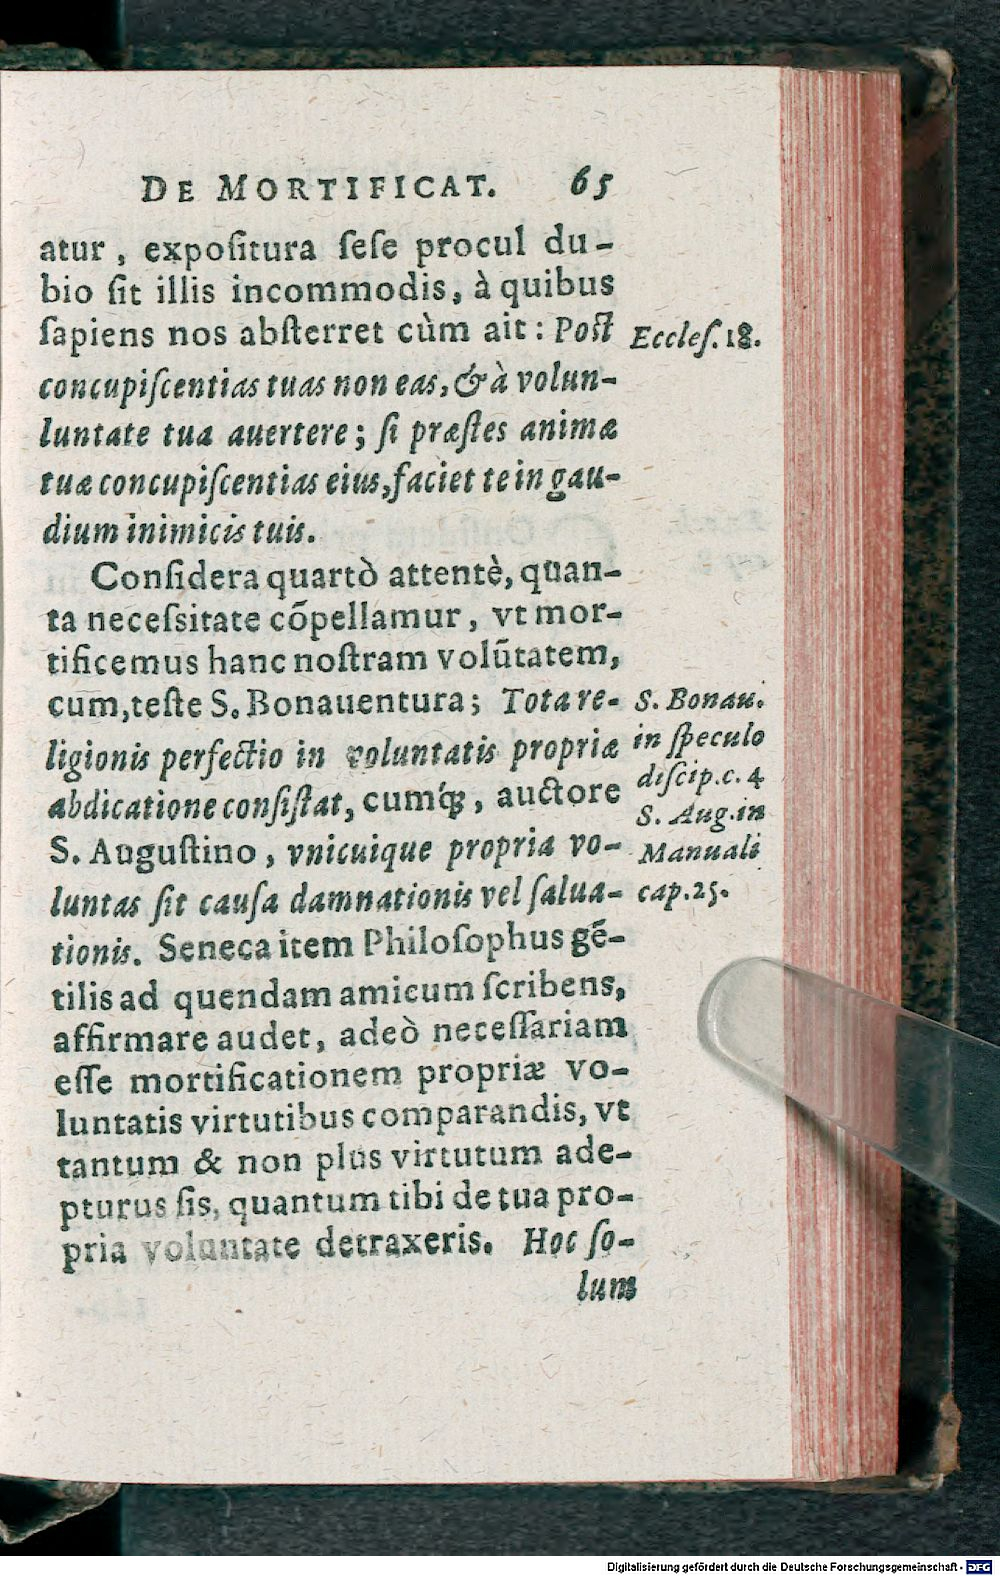 DE MORTIFICAT. 65
atur, expoſitura ſeſe procul du-
bio ſit illis incommodis, à quibus
ſapiens nos abſterret cùm ait: Poſt
Eccleſ. 18.
concupiſcentias tuas non eas, & à volun-
luntate tua auertere; ſi præſtes animæ
tuæ concupiſcentias eius, faciet te in gau-
dium inimicis tuis.
Conſidera quartò attentè, quan-
ta neceſsitate cõpellamur, vt mor-
tificemus hanc noſtram volũtatem,
cum, teſte S. Bonauentura; Tota re-
ligionis perfectio in voluntatis propriæ
abdicatione conſiſtat, cumq́ꝫ, auctore
S. Auguſtino, vnicuique propria vo-
luntas ſit cauſa damnationis vel ſalua-
tionis. Seneca item Philoſophus gẽ-
tilis ad quendam amicum ſcribens,
affirmare audet, adeò neceſſariam
eſſe mortificationem propriæ vo-
luntatis virtutibus comparandis, vt
tantum & non plus virtutum ade-
pturus ſis, quantum tibi de tua pro-
pria voluntate detraxeris. Hoc ſo-
lum
S. Bonau.
in ſpeculo
diſcip. c. 4
S. Aug. in
Manuali
cap. 25.
Digitalisierung gefördert durch die Deutsche Forschungsgemeinschaft - DFG